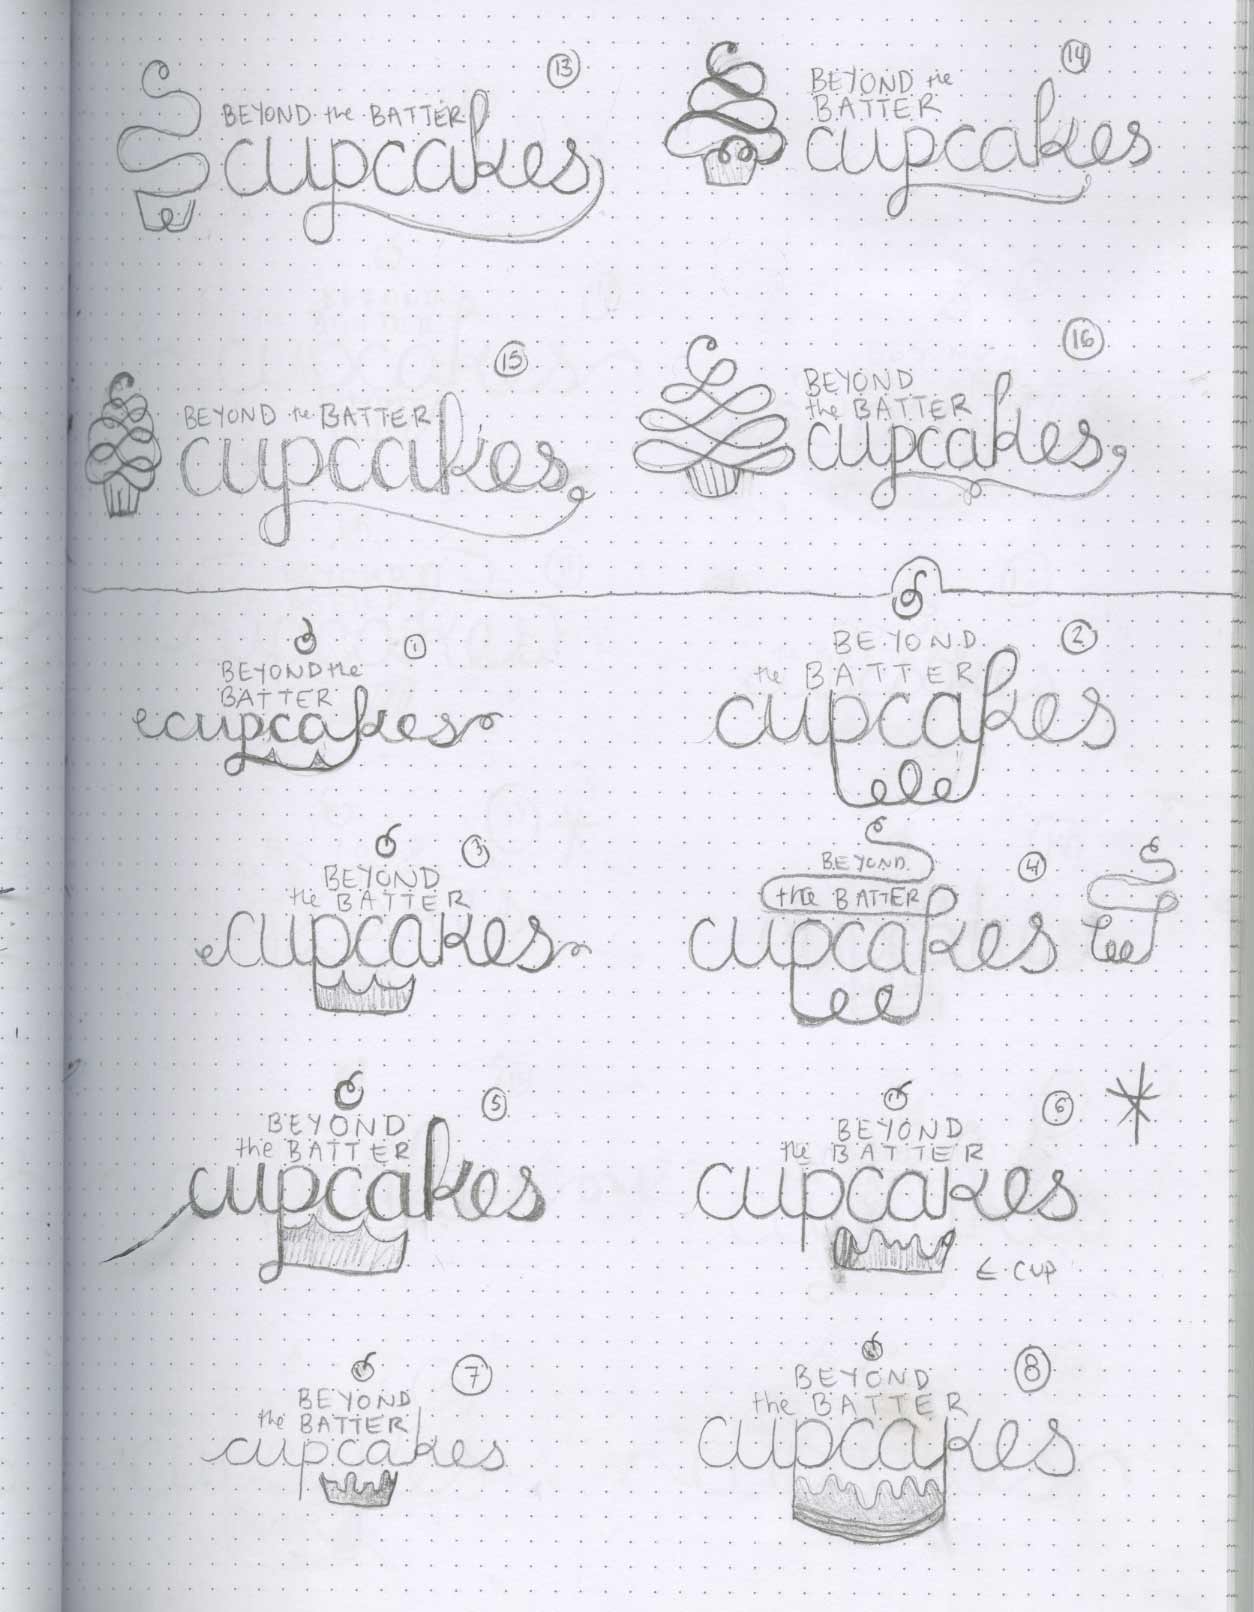 13
BEYOND the BATTER
cupcakes
14
BEYOND the
BATTER
cupcakes
15
BEYOND the BATTER
cupcakes
16
BEYOND
the BATTER
cupcakes
1
BEYOND the
BATTER
cupcakes
2
BEYOND
the BATTER
cupcakes
3
BEYOND
the BATTER
cupcakes
4
BEYOND
the BATTER
cupcakes
5
BEYOND
the BATTER
cupcakes
6
BEYOND
the BATTER
cupcakes
← CUP
7
BEYOND
the BATTER
cupcakes
8
BEYOND
the BATTER
cupcakes